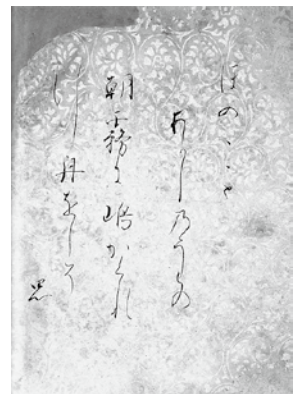 ほのゝゝと
あかし乃うらの
朝霧に嶋かくれ
行舟をしそ
思